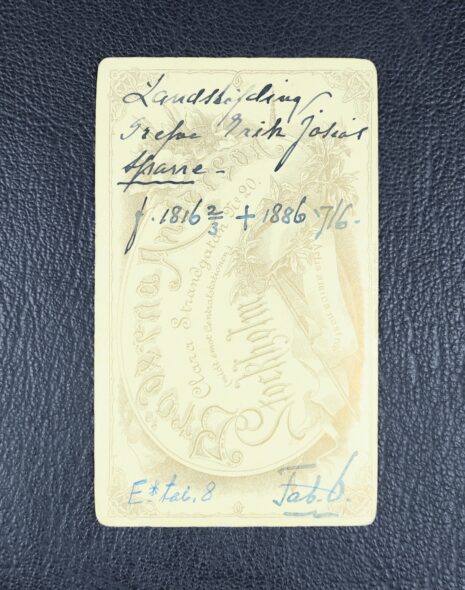 Landshöfding
Grefve Erik Josias
Sparre -
f. 1816 2/3 + 1886 7/6.
Bröderna
Clara Strandgatan No 20.
Stockholm
E* tab. 8
Tab. 6.